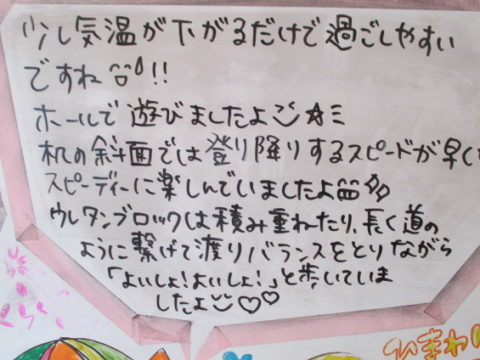 少し気温が下がるだけで過ごしやすい
ですね!!
ホールで遊びましたよ☆ミ
机の斜面では登り降りするスピードが早く
スピーディーに楽しんでいましたよ
ウレタンブロックは積み重ねたり、長く道の
ように繋げて渡りバランスをとりながら
「よいしょ!よいしょ!」と歩いていま
したよ♡♡
さくら
ひまわり